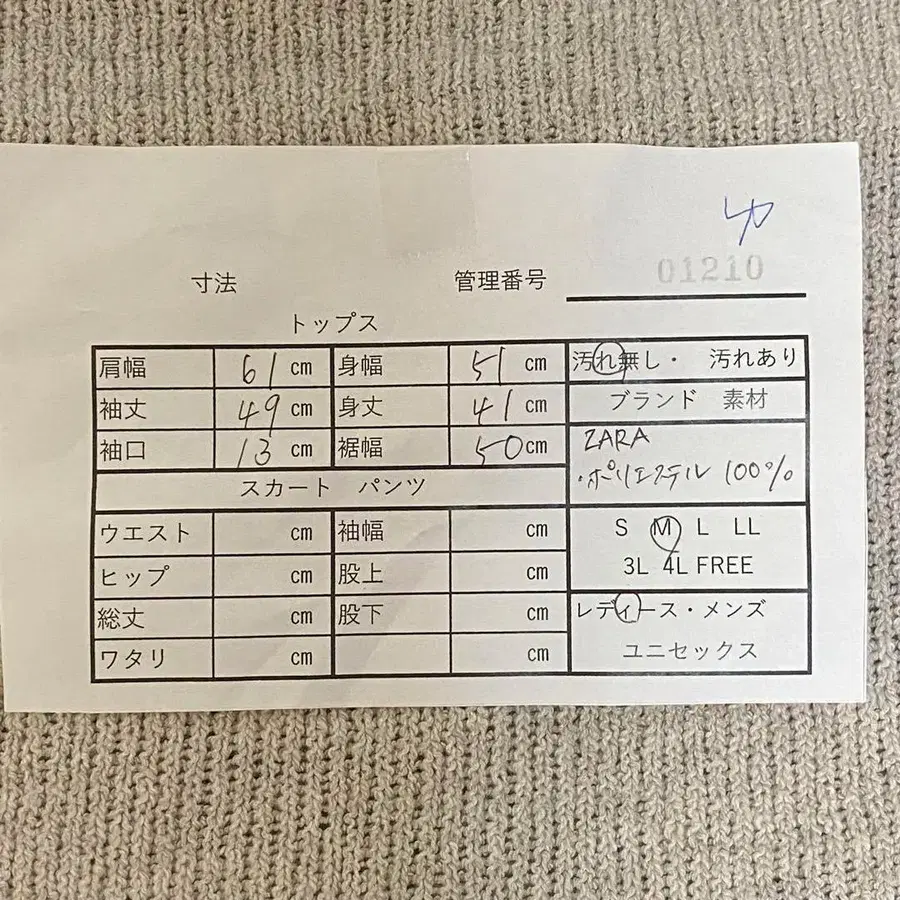 寸法 管理番号 01210
トップス
肩幅 61 cm 身幅 51 cm 汚れ無し・ 汚れあり
袖丈 49 cm 身丈 41 cm ブランド 素材
袖口 13 cm 裾幅 50 cm ZARA
・ポリエステル 100%
スカート パンツ
ウエスト cm 袖幅 cm S M L LL
ヒップ cm 股上 cm 3L 4L FREE
総丈 cm 股下 cm レディース・メンズ
ワタリ cm cm ユニセックス